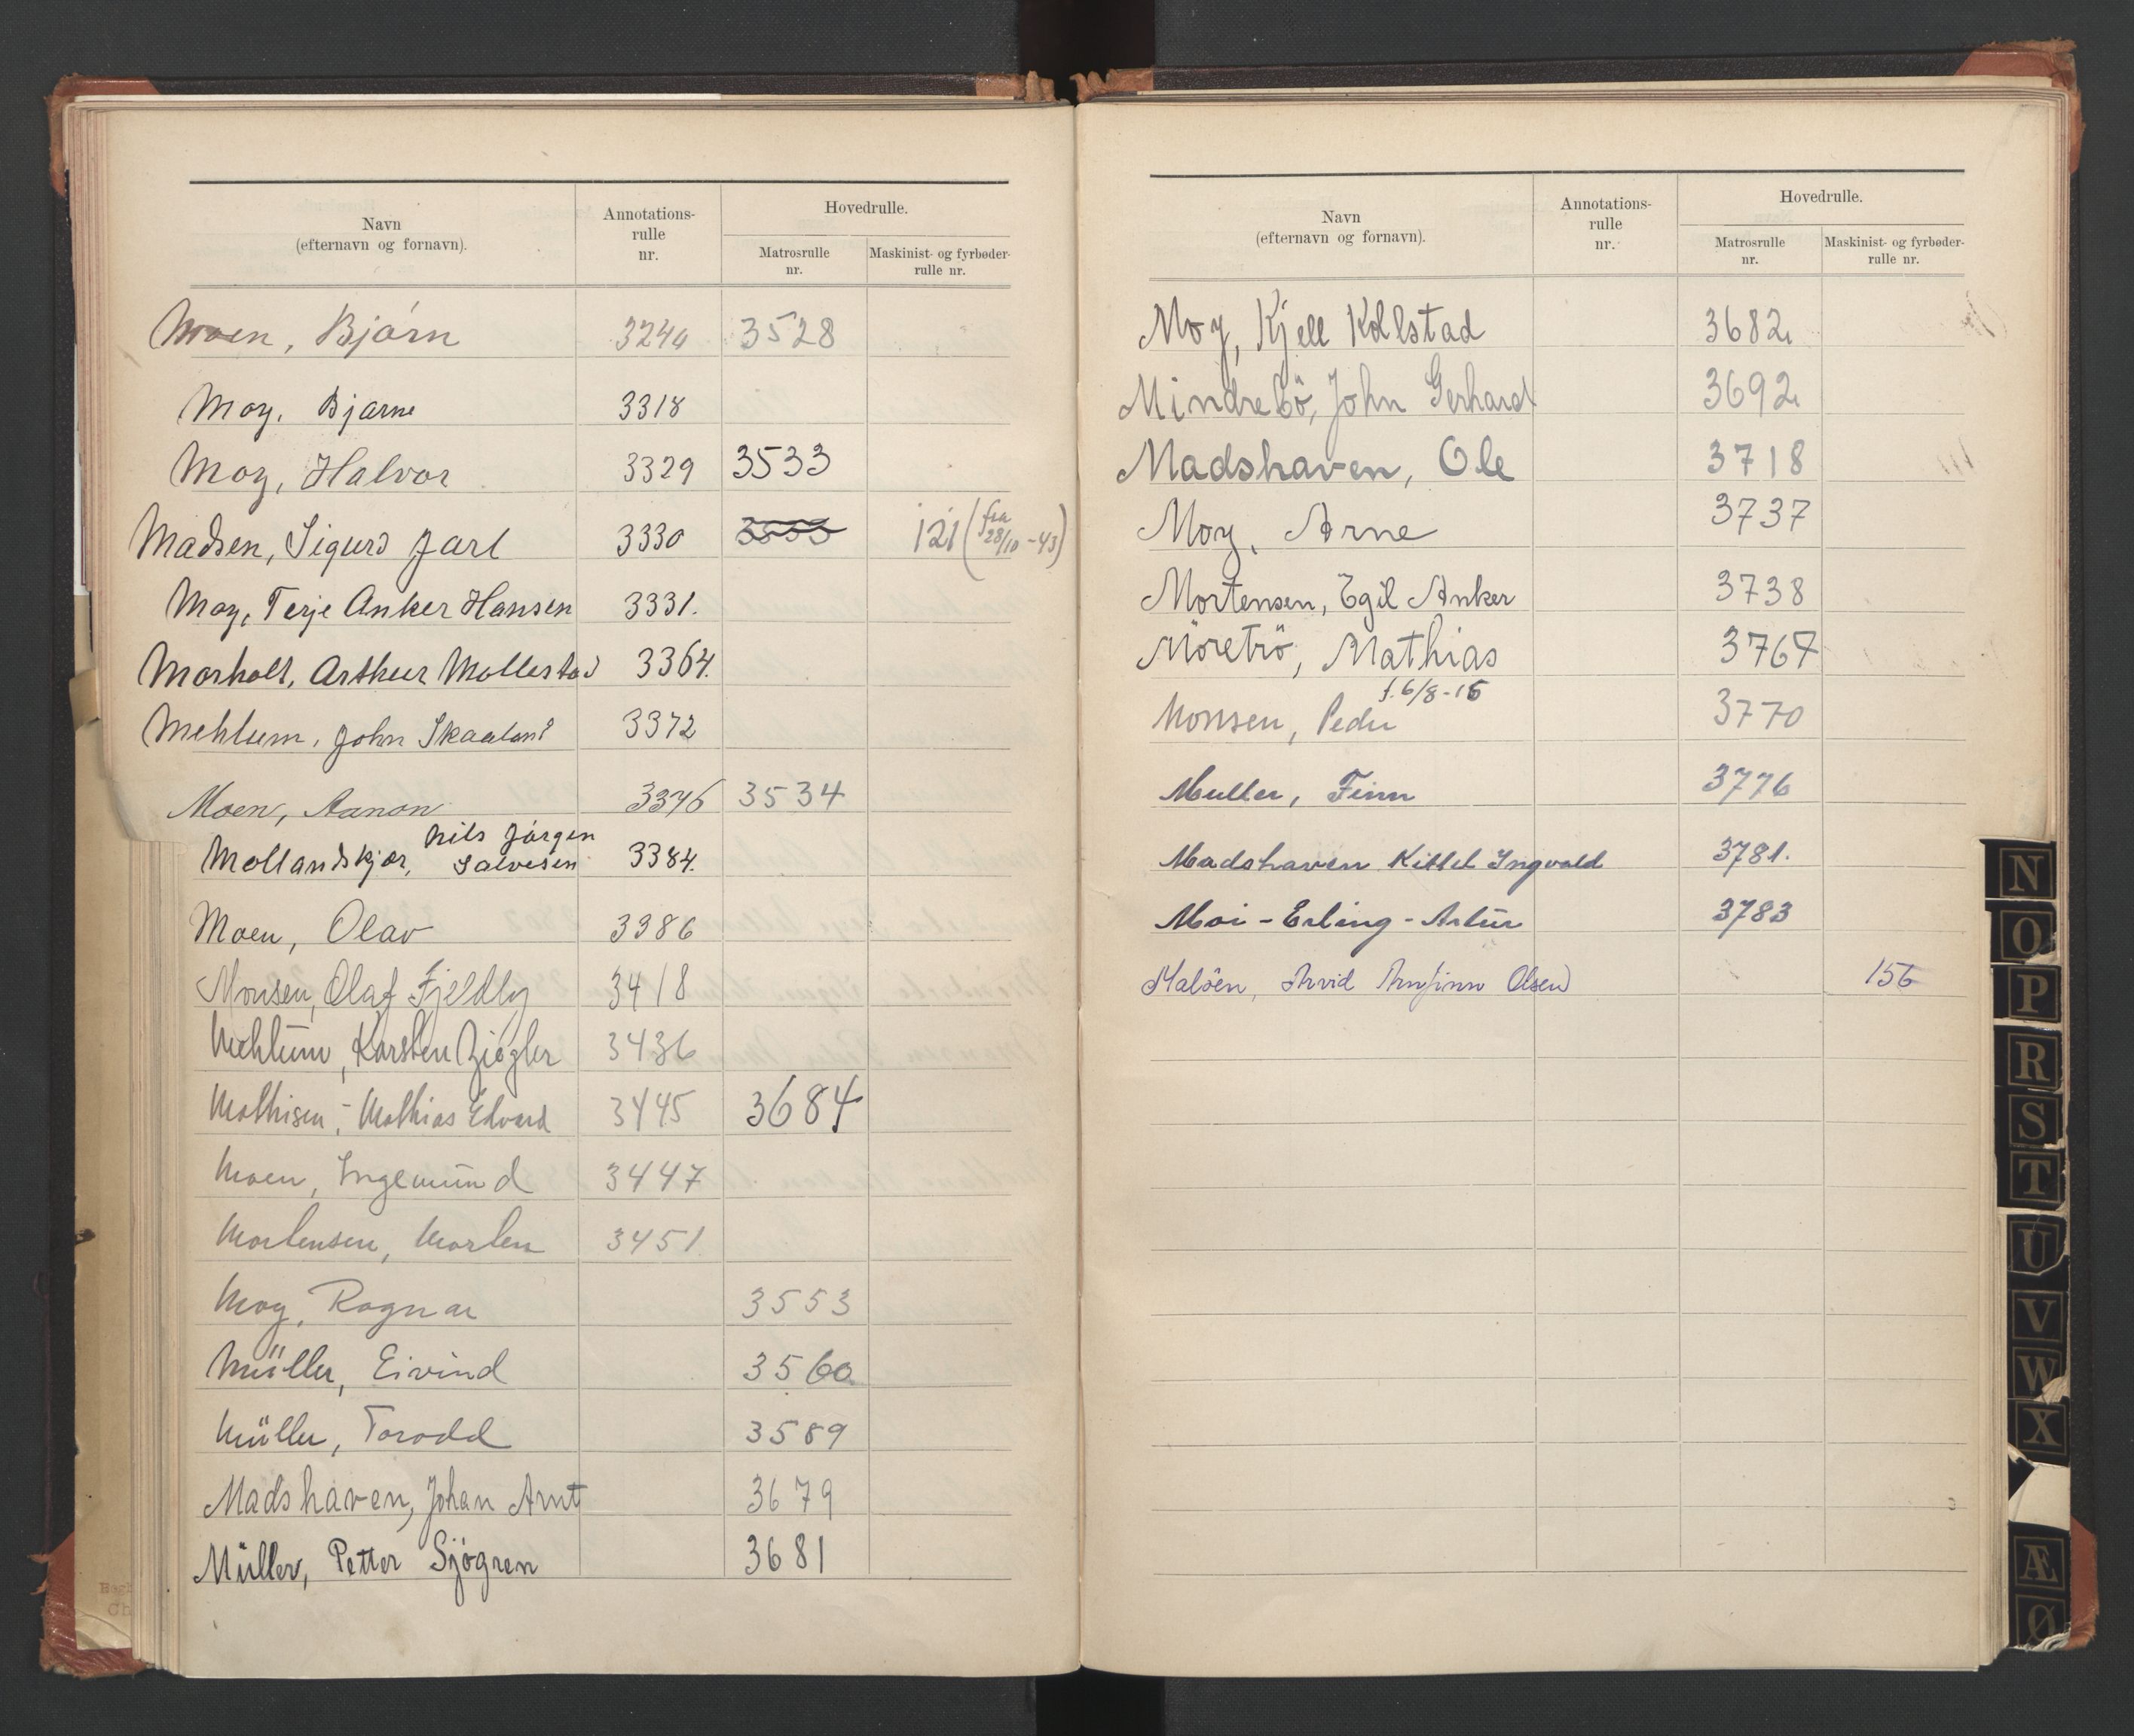 Navn
(efternavn og fornavn).
Annotations-
rulle
nr.
Hovedrulle.
Matrosrulle
nr.
Maskinist- og fyrbøder-
rulle nr.
Moen, Bjørn 3240 3528
Moy, Bjarne 3318
Moy, Halvor 3329 3533
Madsen, Sigurd Jarl 3330 3533 121 (fra 28/10-43)
Moy, Terje Anker Hansen 3331.
Morholt, Arthur Mollestad 3364.
Mehlum, John Skaaland 3372
Moen, Aanon 3376 3534
Mollandskjær, Nils Jørgen
Salvesen 3384.
Moen, Olav 3386
Monsen, Olaf Fjeldly 3418
Mehlum, Karsten Ziegler 3436
Mathisen, Mathias Edvard 3445 3684
Moen, Ingemund 3447
Mortensen, Morten 3451
Moy, Ragnar 3553
Müller, Eivind 3560
Müller, Torodd 3589
Madshaven, Johan Arnt 3679
Müller, Petter Sjögren 3681
Navn
(efternavn og fornavn).
Annotations-
rulle
nr.
Hovedrulle.
Matrosrulle
nr.
Maskinist- og fyrbøder-
rulle nr.
Moy, Kjell Kollstad 3682
Mindrebö, John Gerhard 3692
Madshaven, Ole 3718
Moy, Arne 3737
Mortensen, Egil Anker 3738
Möretrö, Mathias 3767
f. 6/8-15
Monsen, Peder 3770
Muller, Finn 3776
Madshaven Kittel Ingvald 3781.
Moi - Erling - Artur 3783
Malsen, Arvid Arnfinn Olsen 156
N
O
P
R
S
T
U
V
W
X
Æ
Ø